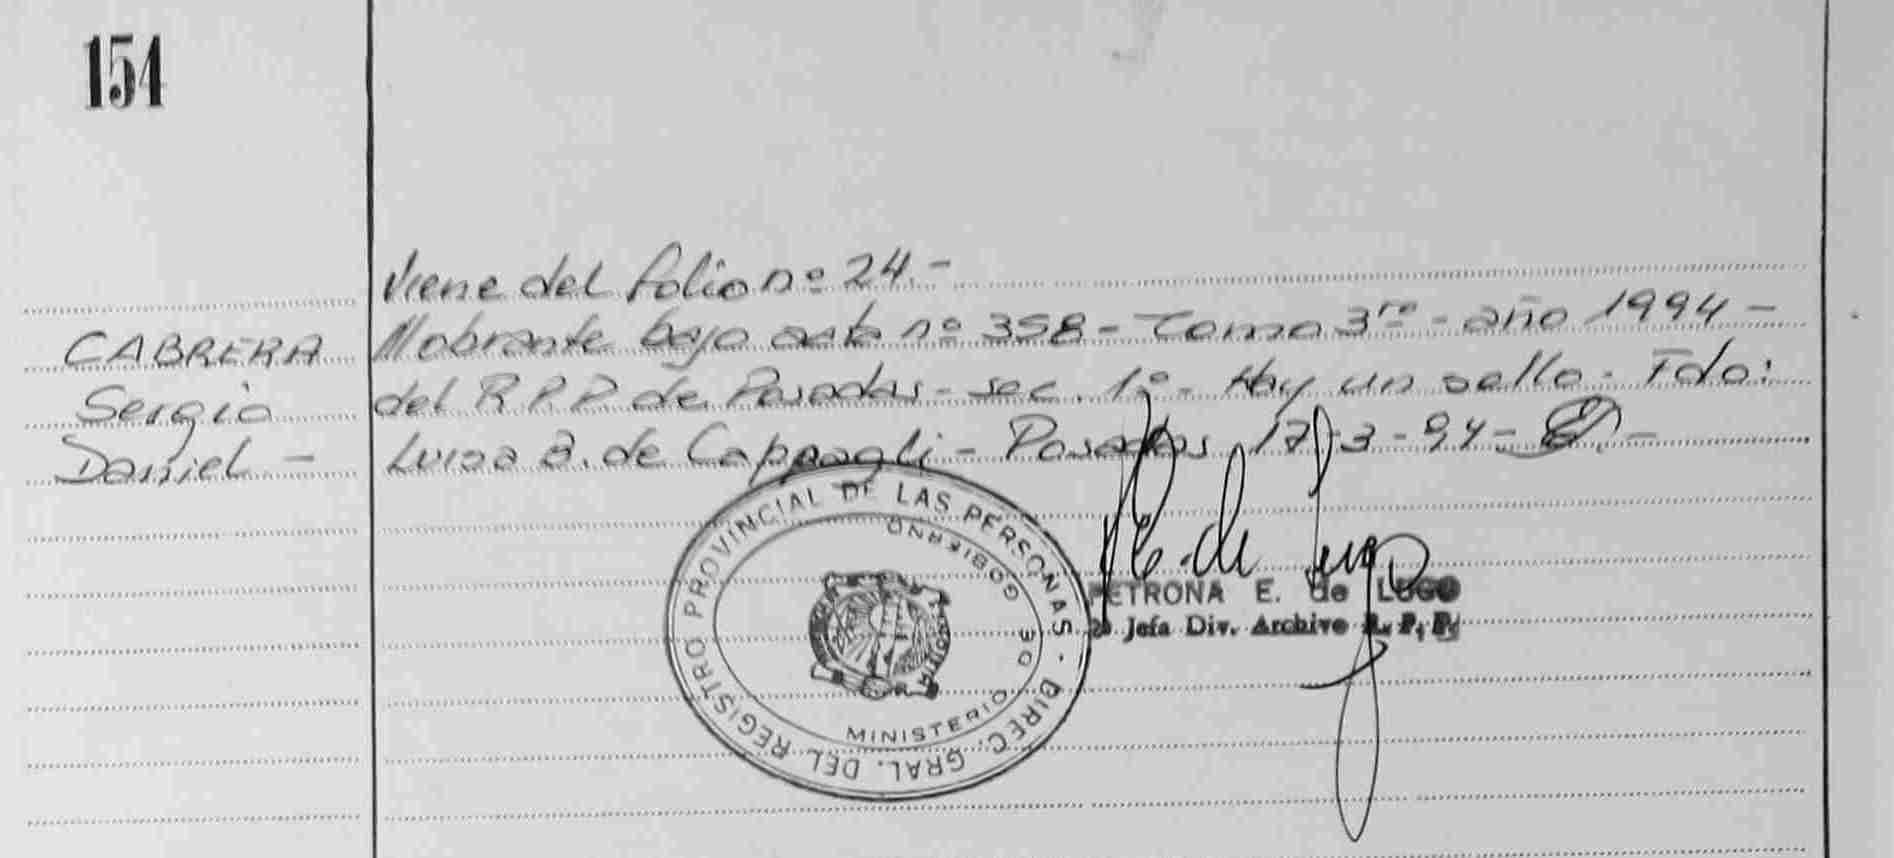 154
Viene del folio nº 24.-
CABRERA
Sergio
Daniel -
Nobrante bajo acta nº 358 - Tomo 3ro - año 1994 -
del R.P.P de Posadas - sec. 1º - Hay un sello. Fdo:
Luisa B. de Cappagli - Posadas, 17-3-94 -
DIREC. GRAL. DEL REGISTRO PROVINCIAL DE LAS PERSONAS.
MINISTERIO DE GOBIERNO
E. de Lugo
PETRONA E. de LUGO
Jefa Div. Archivo R. P. P.